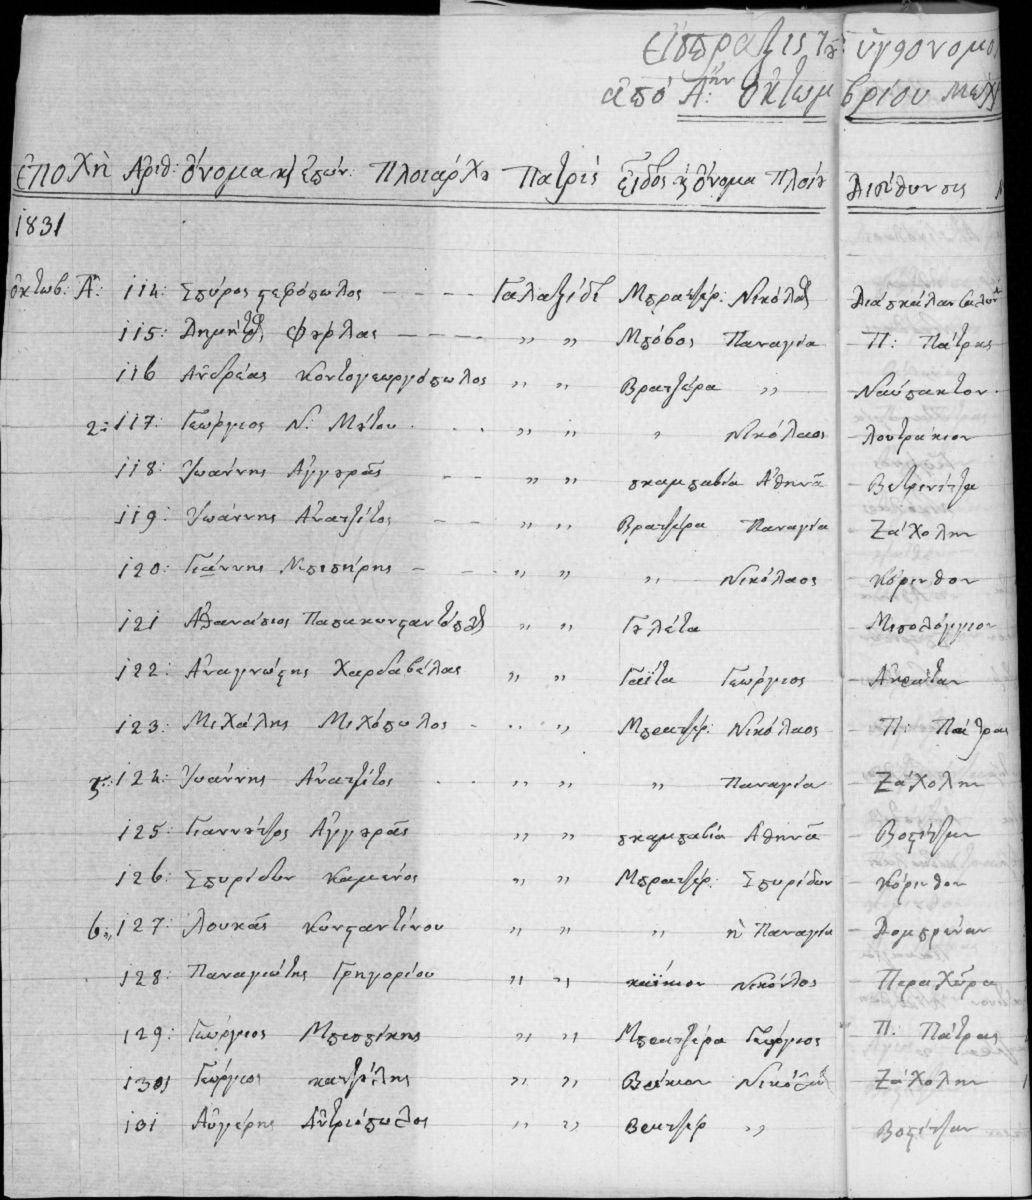 εἴσπραξις τοῦ ὑγιονομο
ἀπὸ Αην ὀκτωμβρίου μέχρ
ἐποχὴ Ἀριθ: ὄνομα κ ἐπών: Πλοιάρχου Πατρίς Εἶδος κ ὄνομα Πλοίου Διεύθυνσις
1831
ὀκτωβ: Αη: 114: Σπύρος - - - - Γαλαξείδι Μπρατζέρ: Νικόλαος
115: Δημήτριος - - - " " Μπόβος Παναγία - Π: Πάτρας
116 Ἀνδρέας Κοντογεωργόπωλος " " Βρατζέρα " Ναύπακτον.
2: 117: Γεώργιος Ν: Μήτου - - - " " " Νικόλαος - Λουτράκιον
118: Ἰωάννης Ἀγγουρᾶς - - " " σκαμπαβία Ἀθηνᾶ - Βετρενίτζα
119: Ἰωάννης Ἀνατζίτος - - " " Βρατζέρα Παναγία - Ζάχολην
120: Γιάννης - - - " " " Νικόλαος - Κόρινθον
121 Ἀθανάσιος Παπακωνσταντόπουλος " " Γολέτα - Μισολόγγιον
122: Ἀναγνώστης Χαρδαβέλας " " Γαΐτα Γεώργιος -
123: Μιχάλης Μιχόπωλος - " " Μπρατζέρ: Νικόλαος - Π: Πάτρας
5: 124: Ἰωάννης Ἀνατζίτος - - " " " Παναγία - Ζάχολην
125: Γιαννοῦτζος Ἀγγουρᾶς " " σκαμπαβία Ἀθηνᾶ - Βοστίτζαν
126: Σπυρίδων Καμένος " " Μπρατζέρ: Σπυρίδων - Κόρινθον
6: 127: Λουκᾶς Κωνσταντίνου " " " ἡ Παναγία - Δομπρέναν
128: Παναγιώτης Γρηγορίου " " καΐκιον Νικόλαος - Περαχῶρα
129: Γεώργιος " " Μπρατζέρα Γεώργιος - Π: Πάτρας
130 Γεώργιος " " Βρίκιον Νικόλαος - Ζάχολην
131 Αὐγέρης Ἀντριόπουλος " " Βρατζέρ " - Βοστίτζαν